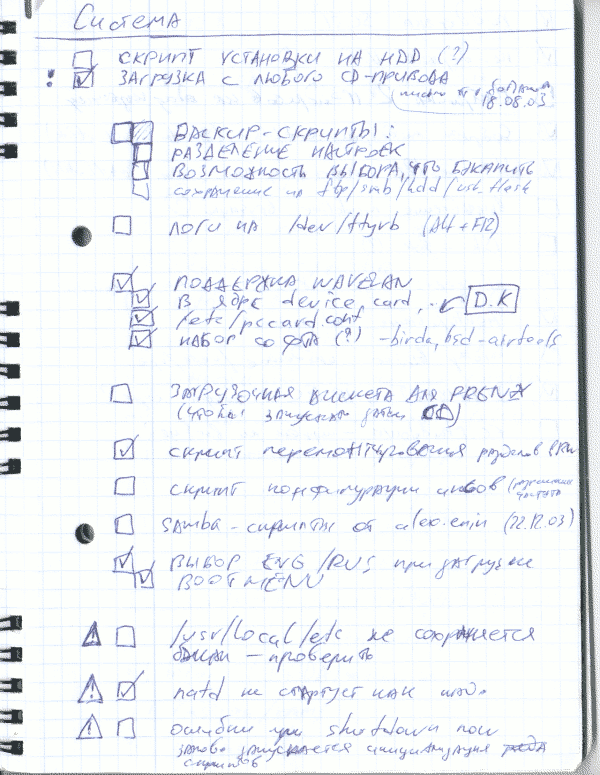 Система
СКРИПТ УСТАНОВКИ НА HDD (?)
! ЗАГРУЗКА С ЛЮБОГО CD-ПРИВОДА
письмо от
18.08.03
БАСКИР-СКРИПТЫ:
РАЗДЕЛЕНИЕ НАСТРОЕК
ВОЗМОЖНОСТЬ ВЫБОРА, ЧТО БЭКАПИТЬ
сохранение на ftp/smb/hdd/usb_flash
ЛОГИ НА /dev/ttyvb (Alt+F12)
ПОДДЕРЖКА WAVELAN
В ЯДРЕ device card, D.K
/etc/pccard.conf
НАБОР СОФТА (?) - birda, bsd-airtools
ЗАГРУЗОЧНАЯ ДИСКЕТА ДЛЯ
(чтобы запускать CD)
скрипт перемонтирования разделов (RW
скрипт конфигурации
Samba-скрипты от alex.enin (22.12.03)
ВЫБОР ENG/RUS при загрузке
BOOT MENU
/usr/local/etc не сохраняется
- проверить
natd не стартует как надо
ошибки при shutdown now
заново запускается инициализация
скриптов